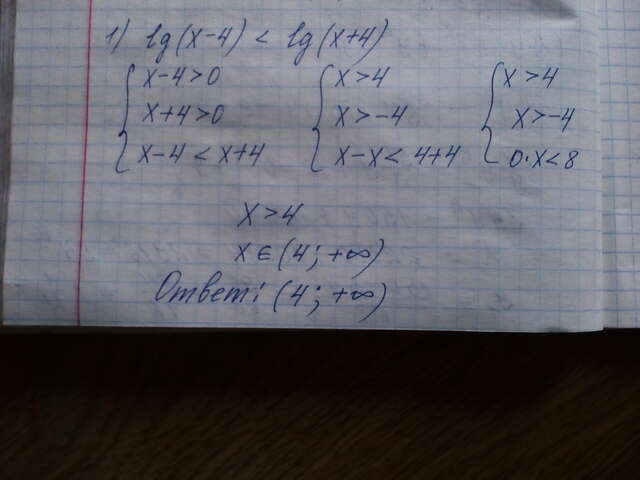 1) lg(x-4) < lg(x+4)
{ x-4>0 { x>4 { x>4
x+4>0 x>-4 x>-4
x-4 < x+4 x-x< 4+4 0·x<8
x>4
x∈(4; +∞)
Ответ: (4; +∞)